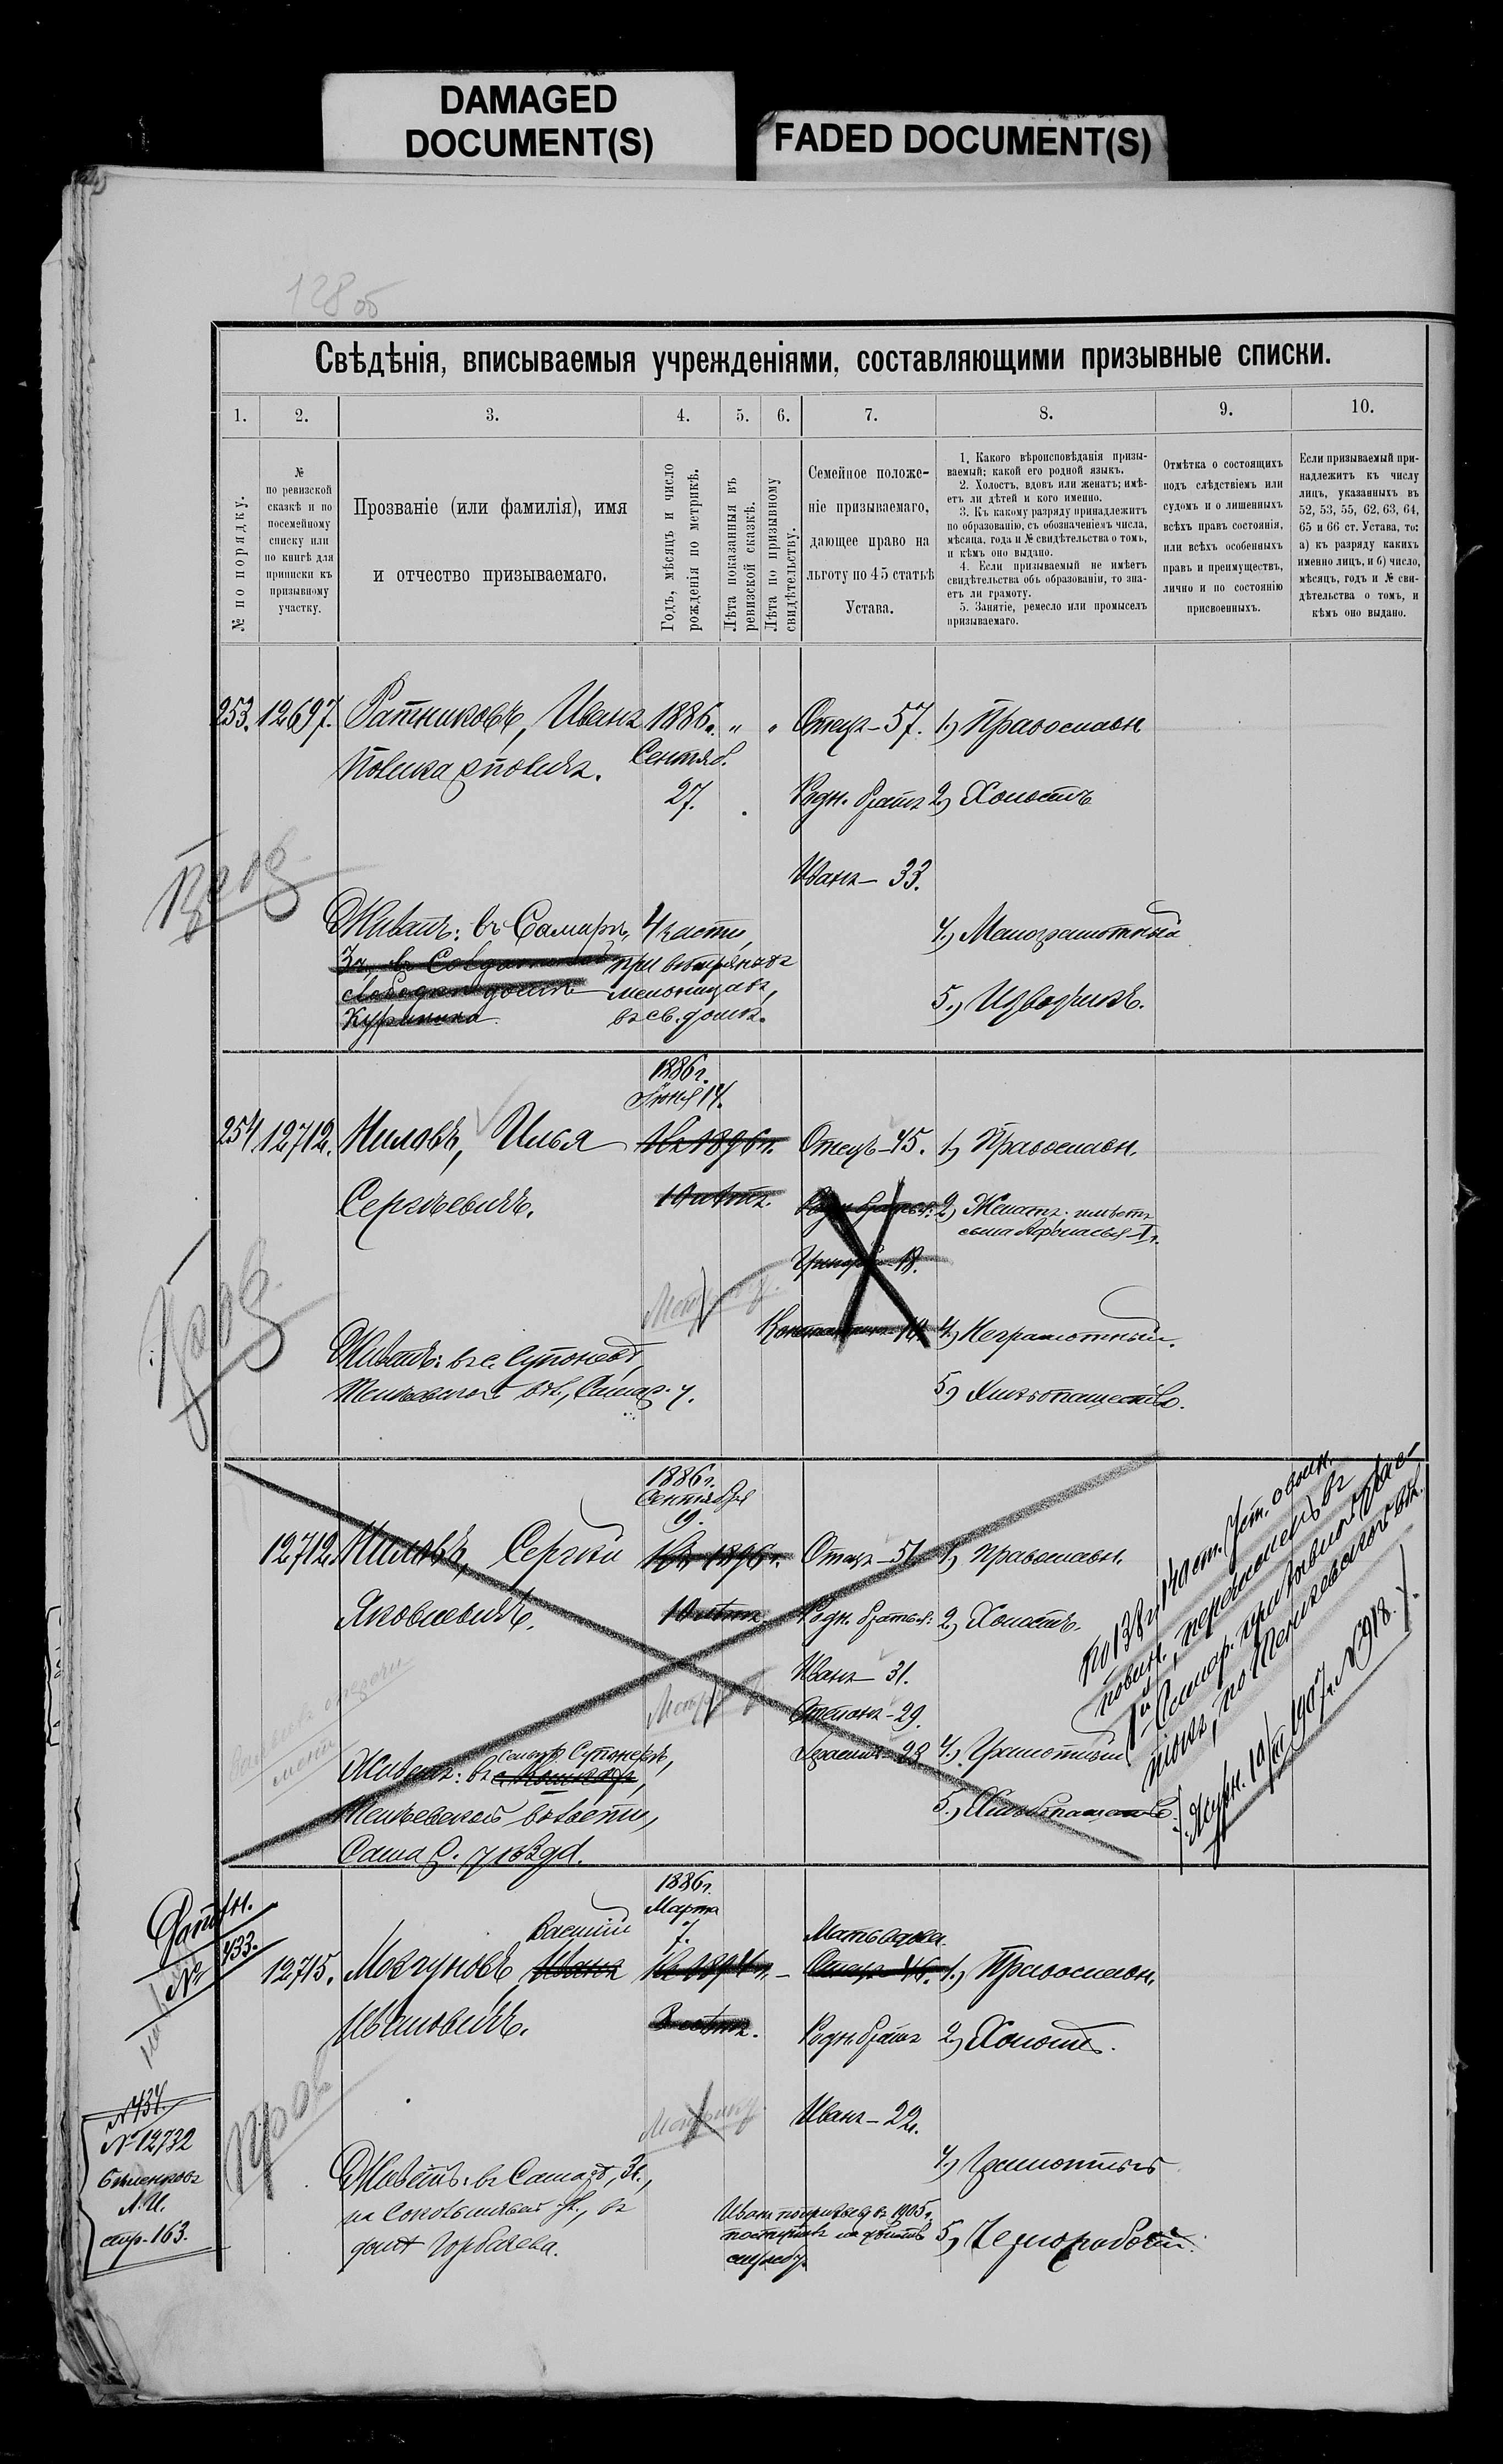 DAMAGED
DOCUMENT(S)
FADED DOCUMENT(S)
128 об
Свѣдѣнія, вписываемыя учрежденіями, составляющими призывные списки.
1.
2.
3.
4.
5.
6.
7.
8.
9.
10.
№ по порядку.
№
по ревизской
сказкѣ и по
посемейному
списку или
по книгѣ для
приписки къ
призывному
участку.
Прозваніе (или фамилія), имя
и отчество призываемаго.
Годъ, мѣсяцъ и число
рожденія по метрикѣ.
Лѣта показанныя въ
ревизской сказкѣ.
Лѣта по призывному
свидѣтельству.
Семейное положе-
ніе призываемаго,
дающее право на
льготу по 45 статьѣ
Устава.
1. Какого вѣроисповѣданія призы-
ваемый; какой его родной языкъ.
2. Холостъ, вдовъ или женатъ; имѣ-
етъ ли дѣтей и кого именно.
3. Къ какому разряду принадлежитъ
по образованію, съ обозначеніемъ числа,
мѣсяца, года и № свидѣтельства о томъ,
и кѣмъ оно выдано.
4. Если призываемый не имѣетъ
свидѣтельства объ образованіи, то зна-
етъ ли грамоту.
5. Занятіе, ремесло или промыселъ
призываемаго.
Отмѣтка о состоящихъ
подъ слѣдствіемъ или
судомъ и о лишенныхъ
всѣхъ правъ состоянія,
или всѣхъ особенныхъ
правъ и преимуществъ,
лично и по состоянію
присвоенныхъ.
Если призываемый при-
надлежитъ къ числу
лицъ, указанныхъ въ
52, 53, 55, 62, 63, 64,
65 и 66 ст. Устава, то:
а) къ разряду какихъ
именно лицъ, и б) число,
мѣсяцъ, годъ и № сви-
дѣтельства о томъ, и
кѣмъ оно выдано.
253. 12697. Ратниковъ, Иванъ 1886г. " " Отецъ-57. 1) Православн
Поликарповичъ. Сентяб.
27. Родн. братъ 2) Холостъ
Иванъ-33.
Живетъ: въ Самарѣ, 4 части, 4) Малограмотный
при вѣтряныхъ
мельницахъ, 5) Извозчикъ.
въ св. домѣ.
1886г.
Іюня 14.
254 12712. Миловъ, Илья Въ 1896г. Отецъ-45. 1) Православн.
Сергѣевичъ. 10 лѣтъ. Родн. братья: 2) Женатъ. имѣетъ
сына Афонасья-1г.
Григорій-18.
Константинъ-14 4) Неграмотный.
Живетъ: въ с. Супоневѣ,
Самар. у. 5) Хлѣбопашество.
1886г.
Сентября
19.
12712. Миловъ, Сергѣй Въ 1896г. Отецъ-51. 1) Православн.
Яковлевичъ. 10 лѣтъ. Родн. братья: 2) Холостъ.
Иванъ-31.
Степанъ-29.
4) Грамотный
Живетъ: въ
волости, 5) Хлѣбопашество.
Самар. уѣзда.
По 138 и 140 ст. Уст. о воин.
повин. перечисленъ въ
1й Самар. призывной учас-
токъ, по
Журн. 1907г. № 918.
1886г.
Марта
7.
Василій Мать вдова.
12715. Молгуновъ Иванъ Отецъ-46. 1) Православн.
Ивановичъ. 8 лѣтъ. Родн. братъ 2) Холостъ.
Иванъ-22.
4) Грамотный
Живетъ: въ Самарѣ, 3ч.,
въ Иванъ по призыву въ 1905г.
домѣ Горбачева. поступилъ на дѣйств. 5) Чернорабочій.
службу.
№ 433.
№ 434.
№ 12732
стр. 163.